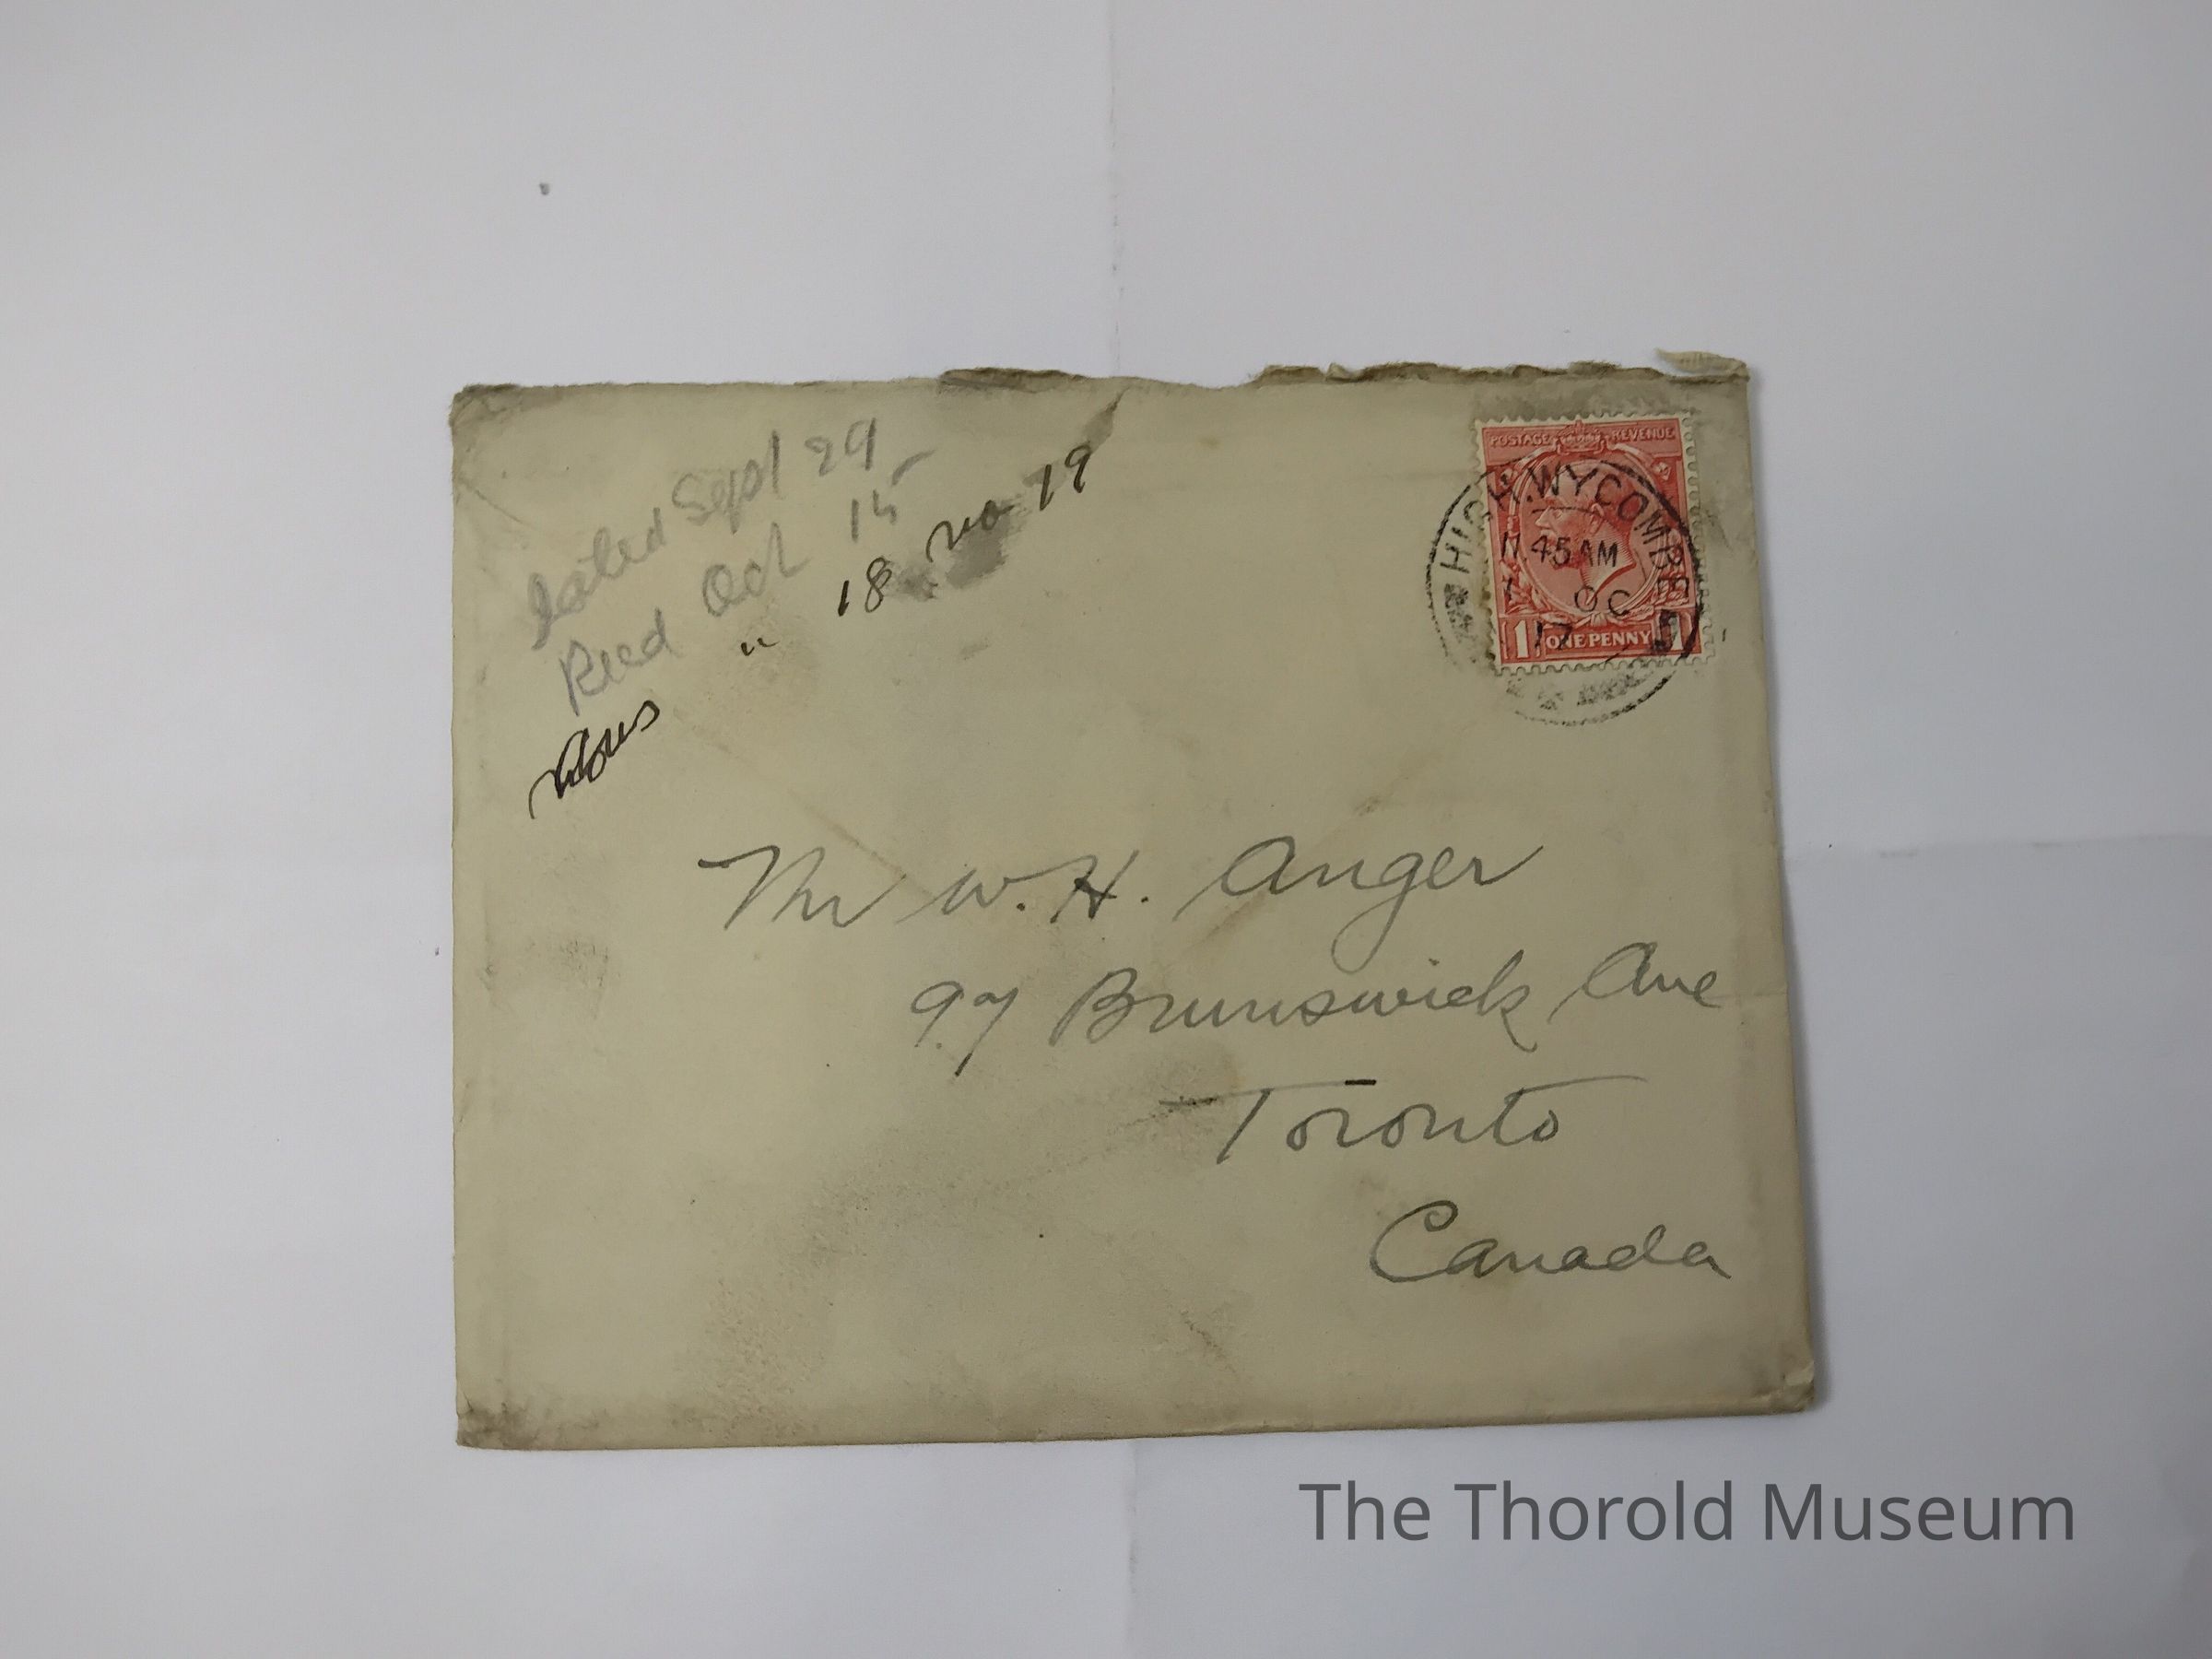 Dated Sept 29
Recd Oct 15
Ans " 18 no 19
POSTAGE REVENUE
HIGH.WYCOMBE
11.45 AM
OC
17
1 ONE PENNY 1
Mr W. H. Anger
97 Brunswick Ave
Toronto
Canada
The Thorold Museum